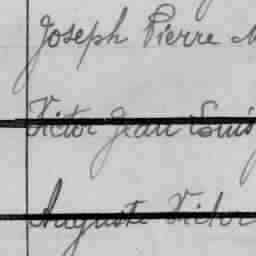 Joseph Pierre M
Victor Jean Louis
Auguste Victor